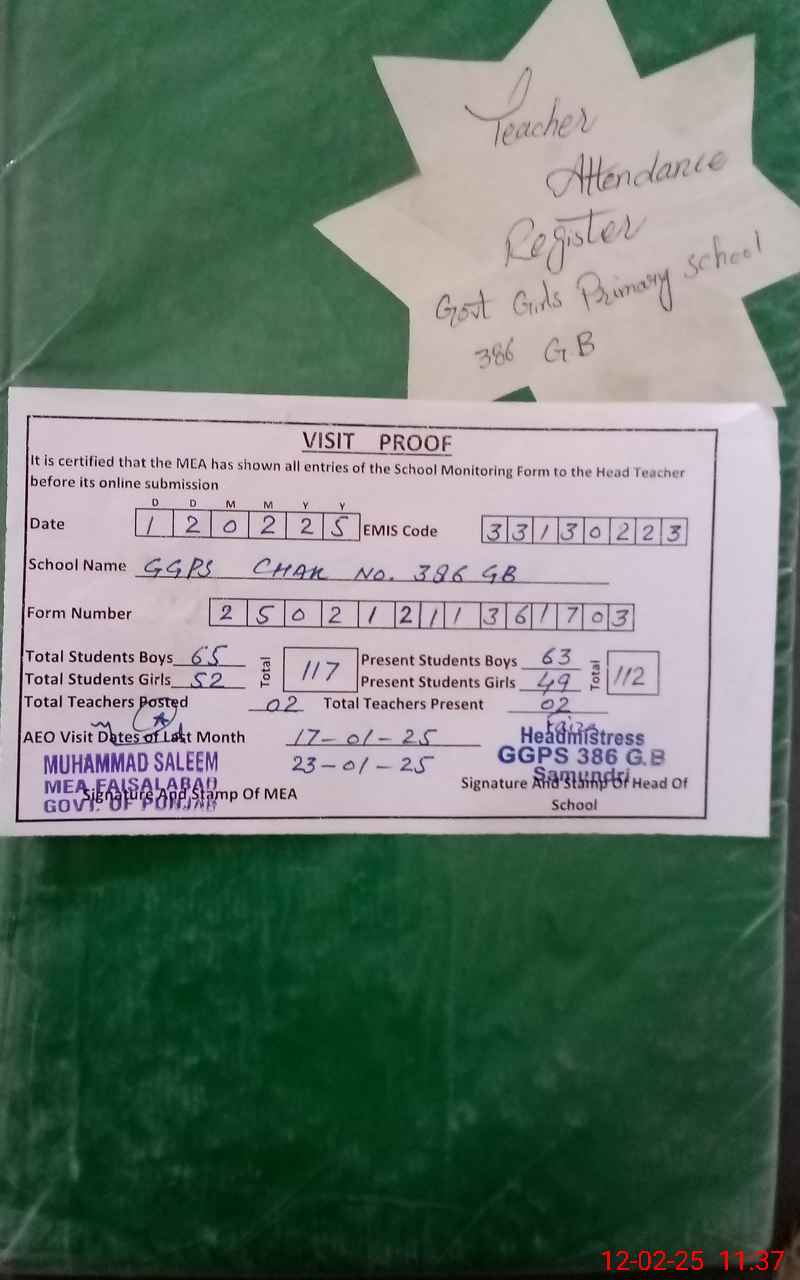 Teacher
Attendance
Register
Govt Girls Primary school
386 GB
VISIT PROOF
It is certified that the MEA has shown all entries of the School Monitoring Form to the Head Teacher
before its online submission
D D M M Y Y
Date 1 2 0 2 2 5 EMIS Code 3 3 1 3 0 2 2 3
School Name GGPS CHAK NO. 386 GB
Form Number 2 5 0 2 1 2 1 1 3 6 1 7 0 3
Total Students Boys 65 Total 117 Present Students Boys 63 Total 112
Total Students Girls 52 Present Students Girls 49
Total Teachers Posted 02 Total Teachers Present 02
AEO Visit Dates of Last Month 17-01-25
23-01-25
Faiza
Headmistress
GGPS 386 G.B
Samundri
MUHAMMAD SALEEM
MEA FAISALABAD
GOVT. OF PUNJAB
Signature And Stamp Of MEA
Signature And Stamp Of Head Of
School
12-02-25 11.37